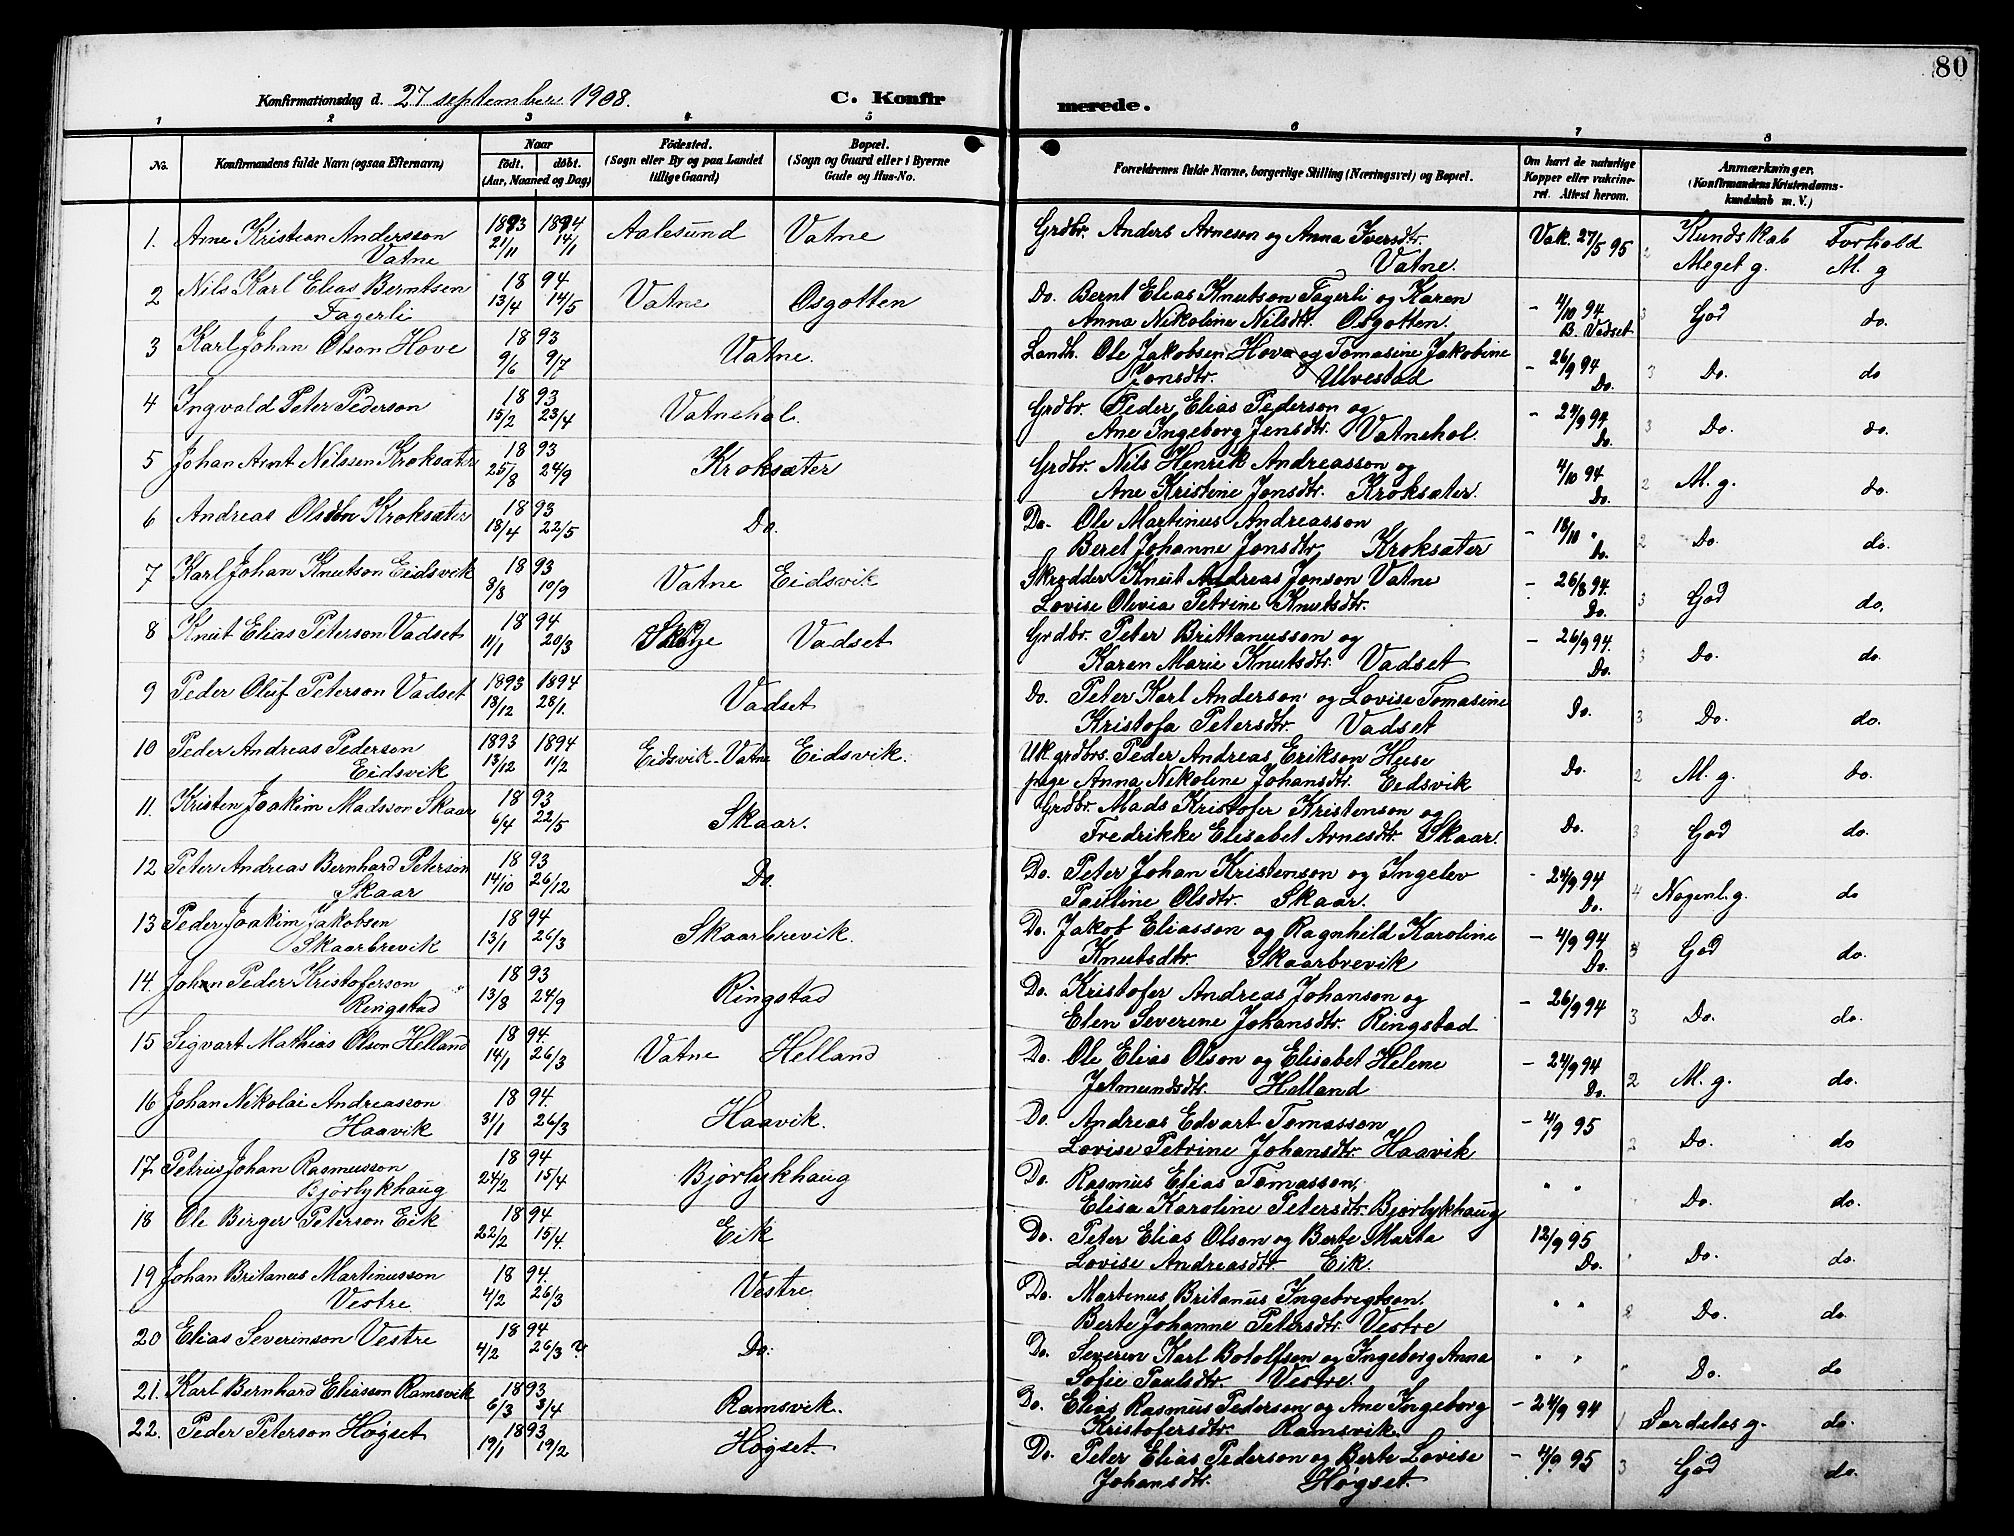 80
Konfirmationsdag d. 27 september 1908.
C. Konfirmerede.
1 2 3 4 5 6 7 8
No. Konfirmandens fulde Navn (ogsaa Efternavn) Naar født. døbt. (Aar, Maaned og Dag) Fødested. (Sogn eller By og paa Landet tillige Gaard) Bopæl. (Sogn og Gaard eller i Byerne Gade og Hus-No. Forældrenes fulde Navne, borgerlige Stilling (Næringsvei) og Bopæl. Om havt de naturlige Kopper eller vakcineret. Attest herom. Anmærkninger. (Konfirmandens Kristendomskundskab m. V.)
Kundskab Forhold
1. Arne Kristian Andersson Vatne 1893 21/11 1894 14/1 Aalesund Vatne Grdbr. Anders Arneson og Anna Iversdtr. Vatne. Vak. 27/5 95 2 Meget g. M. g
2 Nils Karl Elias Berntsen Fagerli 1894 13/4 14/5 Vatne Osgotten Do. Bernt Elias Knutson Fagerli og Karen Anna Nikoline Nilsdtr. Osgotten. - 4/10 94 B. Vadset 3 God do.
3 Karl Johan Olson Hove 1893 9/6 9/7 Vatne. Landh. Ole Jakobsen Hove og Tomasine Jakobine Jonsdtr. Ulvestad - 26/9 94 Do. 3 Do. do
4 Ingvald Peter Pederson 1893 15/2 23/4 Vatnehol. Grdbr. Peder Elias Pederson og Ane Ingeborg Jensdtr. Vatnehol. - 24/9 94 Do. 3 Do. do.
5 Johan Arnt Nilssen Kroksæter 1893 25/8 24/9 Kroksæter Grdbr. Nils Henrik Andreasson og Ane Kristine Jonsdtr. Kroksæter. 4/10 94 Do. 2 M. g. do.
6 Andreas Olsson Kroksæter 1893 18/4 22/5 Do. Do. Ole Martinus Andreasson Beret Johanne Jonsdtr. Kroksæter - 18/10 " Do. 2 Do. do.
7 Karl Johan Knutson Eidsvik 1893 8/8 10/9 Vatne Eidsvik Skrædder Knut Andreas Jonson Vatne Lovise Olivia Petrine Knutsdtr. - 26/8 94. Do. 3 God do.
8 Knut Elias Peterson Vadset 1894 11/1 20/3 Vadset Grdbr. Peter Brittanusson og Karen Marie Knutsdtr. Vadset - 26/9 94. Do. 3 Do. do.
9 Peder Oluf Peterson Vadset 1893 18/12 1894 28/1. Vadset Do. Peter Karl Anderson og Lovise Tomasine Kristofa Petersdtr. Vadset Do. 3 Do. do.
10 Peder Andreas Pederson Eidsvik 1893 13/12 1894 11/2 Eidsvik-Vatne Eidsvik. Uk. grdbrs. Peder Andreas Erikson Huse pige Anna Nikoline Johansdtr. Eidsvik Do. 2 M. g. do.
11. Kristen Joakim Madsson Skaar 1893 6/4 22/5 Skaar. Grdbr. Mads Kristofer Kristenson og Fredrikke Elisabet Arnesdtr. Skaar. Do. 3 God do.
12 Peter Andreas Bernhard Peterson Skaar 1893 14/10 26/12 Do. Do. Peter Johan Kristenson og Ingelev Pauline Olsdtr. Skaar. - 24/9 94 Do. 4 Nogenl. g. do
13 Peder Joakim Jakobsen Skaarbrevik 1894 13/1 26/3 Skaarbrevik. Do. Jakob Eliasson og Ragnhild Karoline Knutsdtr. Skaarbrevik - 4/9 94 Do. 3 God do.
14. Johan Peder Kristoferson Ringstad 1893 13/8 24/9 Ringstad Do. Kristofer Andreas Johanson og Elen Severene Johansdtr. Ringstad - 26/9 94 3 Do. do.
15 Sigvart Mathias Olson Helland 1894. 14/1 26/3 Vatne Helland Do. Ole Elias Olson og Elisabet Helene Jetmundsdtr. Helland - 24/9 94 Do. 2 M. g. do.
16 Johan Nikolai Andreasson Haavik 1894 31/1 26/3 Haavik. Do. Andreas Edvart Tomasson Lovise Petrine Johansdtr. Haavik - 4/9 95 2 Do. do
17 Petrus Johan Rasmusson Bjørlykhaug 1894 24/2 15/4 Bjørlykhaug Do. Rasmus Elias Tomasson, Elisa Karoline Petersdtr. Bjørlykhaug " " " Do. do.
18 Ole Birger Peterson Eik 1894 22/2 15/4. Eik Do. Peter Elias Olson og Berte Marta Lovise Andreasdtr Eik. 12/9 95 Do. " Do. do.
19 Johan Britanus Martinusson Vestre 1894. 4/2 26/3 Vestre Do. Martinus Britanus Ingebregtson. Berte Johanne Petersdtr. Vestre " " 2 Do. do.
20 Elias Severinson Vestre 1894 4/2 26/3 ? Do. Do. Severin Karl Botolfson og Ingeborg Anna Sofie Paulsdtr. Vestre. " " " Do. do
21. Karl Bernhard Eliasson Ramsvik 1893 6/3 3/4 Ramsvik. Do. Elias Rasmus Pederson og Ane Ingeborg Kristofersdtr. Ramsvik. - 24/9 94 1 Særdeles g. do.
22. Peder Peterson Høgset 1893 19/1 19/2 Høgset. Do. Peter Elias Pederson og Berte Lovise Johansdtr. Høgset. - 4/9 95 3 God do.